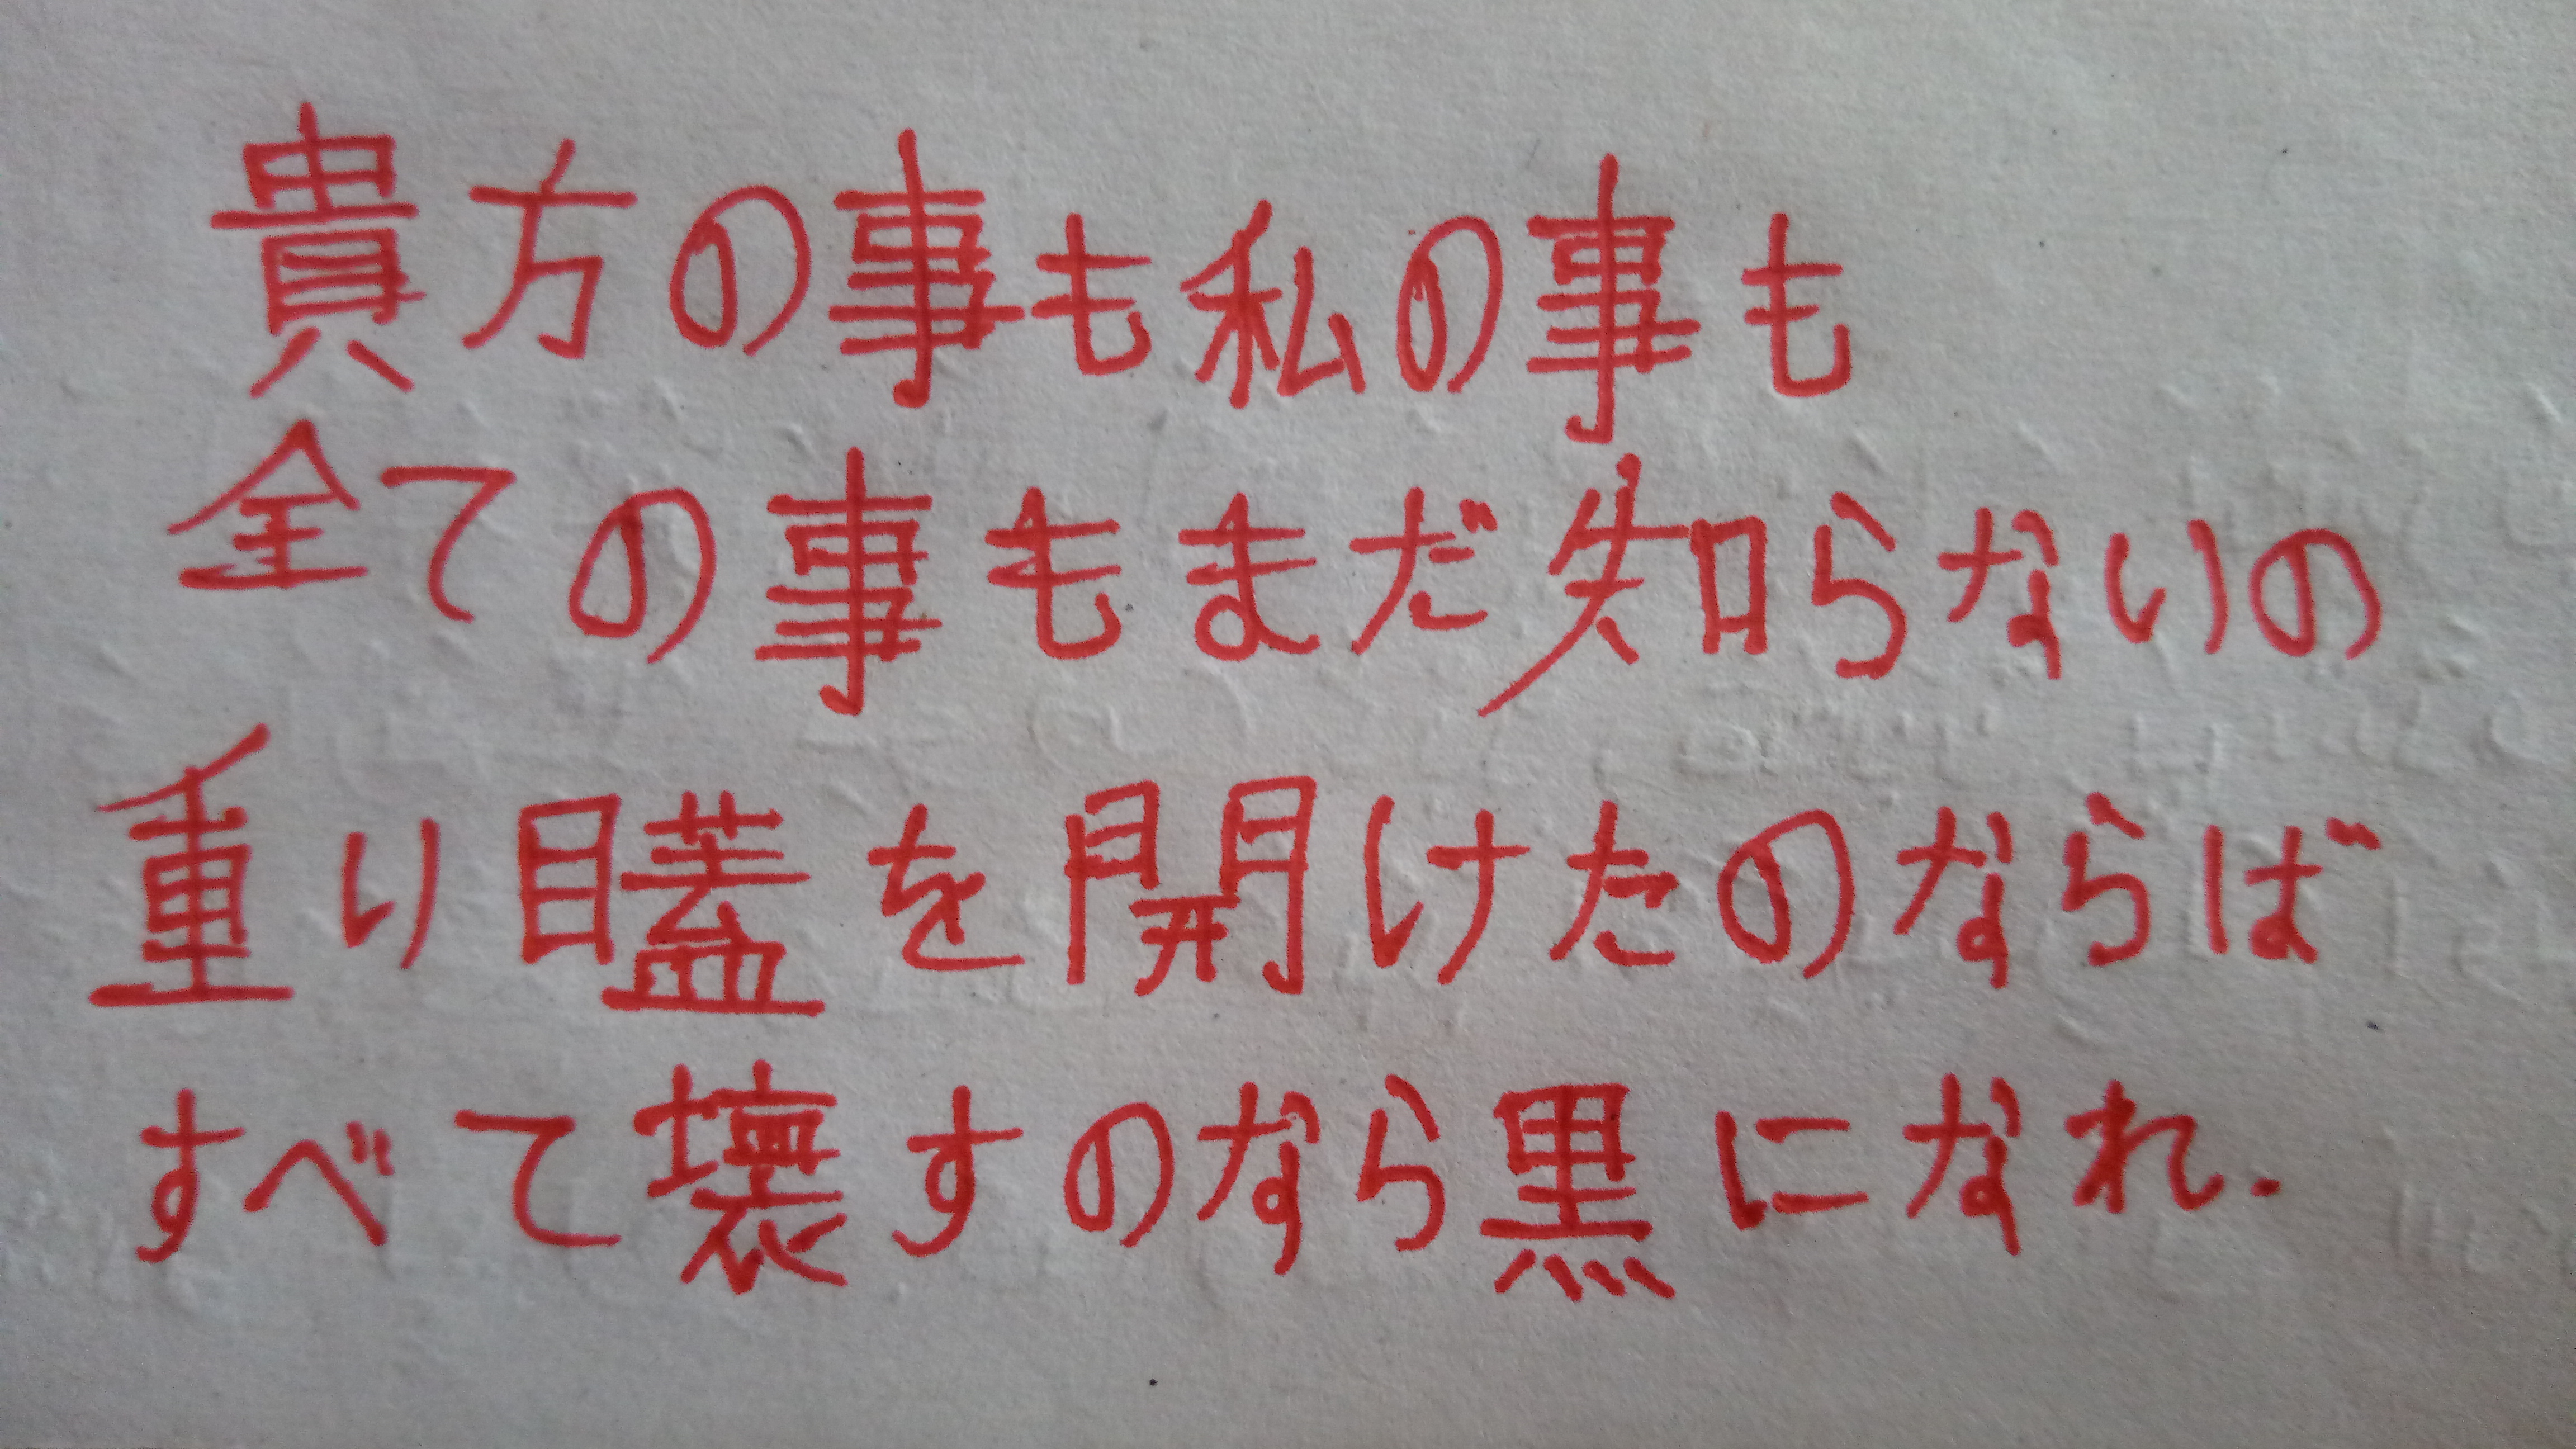 貴方の事も私の事も
全ての事もまだ知らないの
重り瞌を開けたのならば
すべて壊すのなら黒になれ.